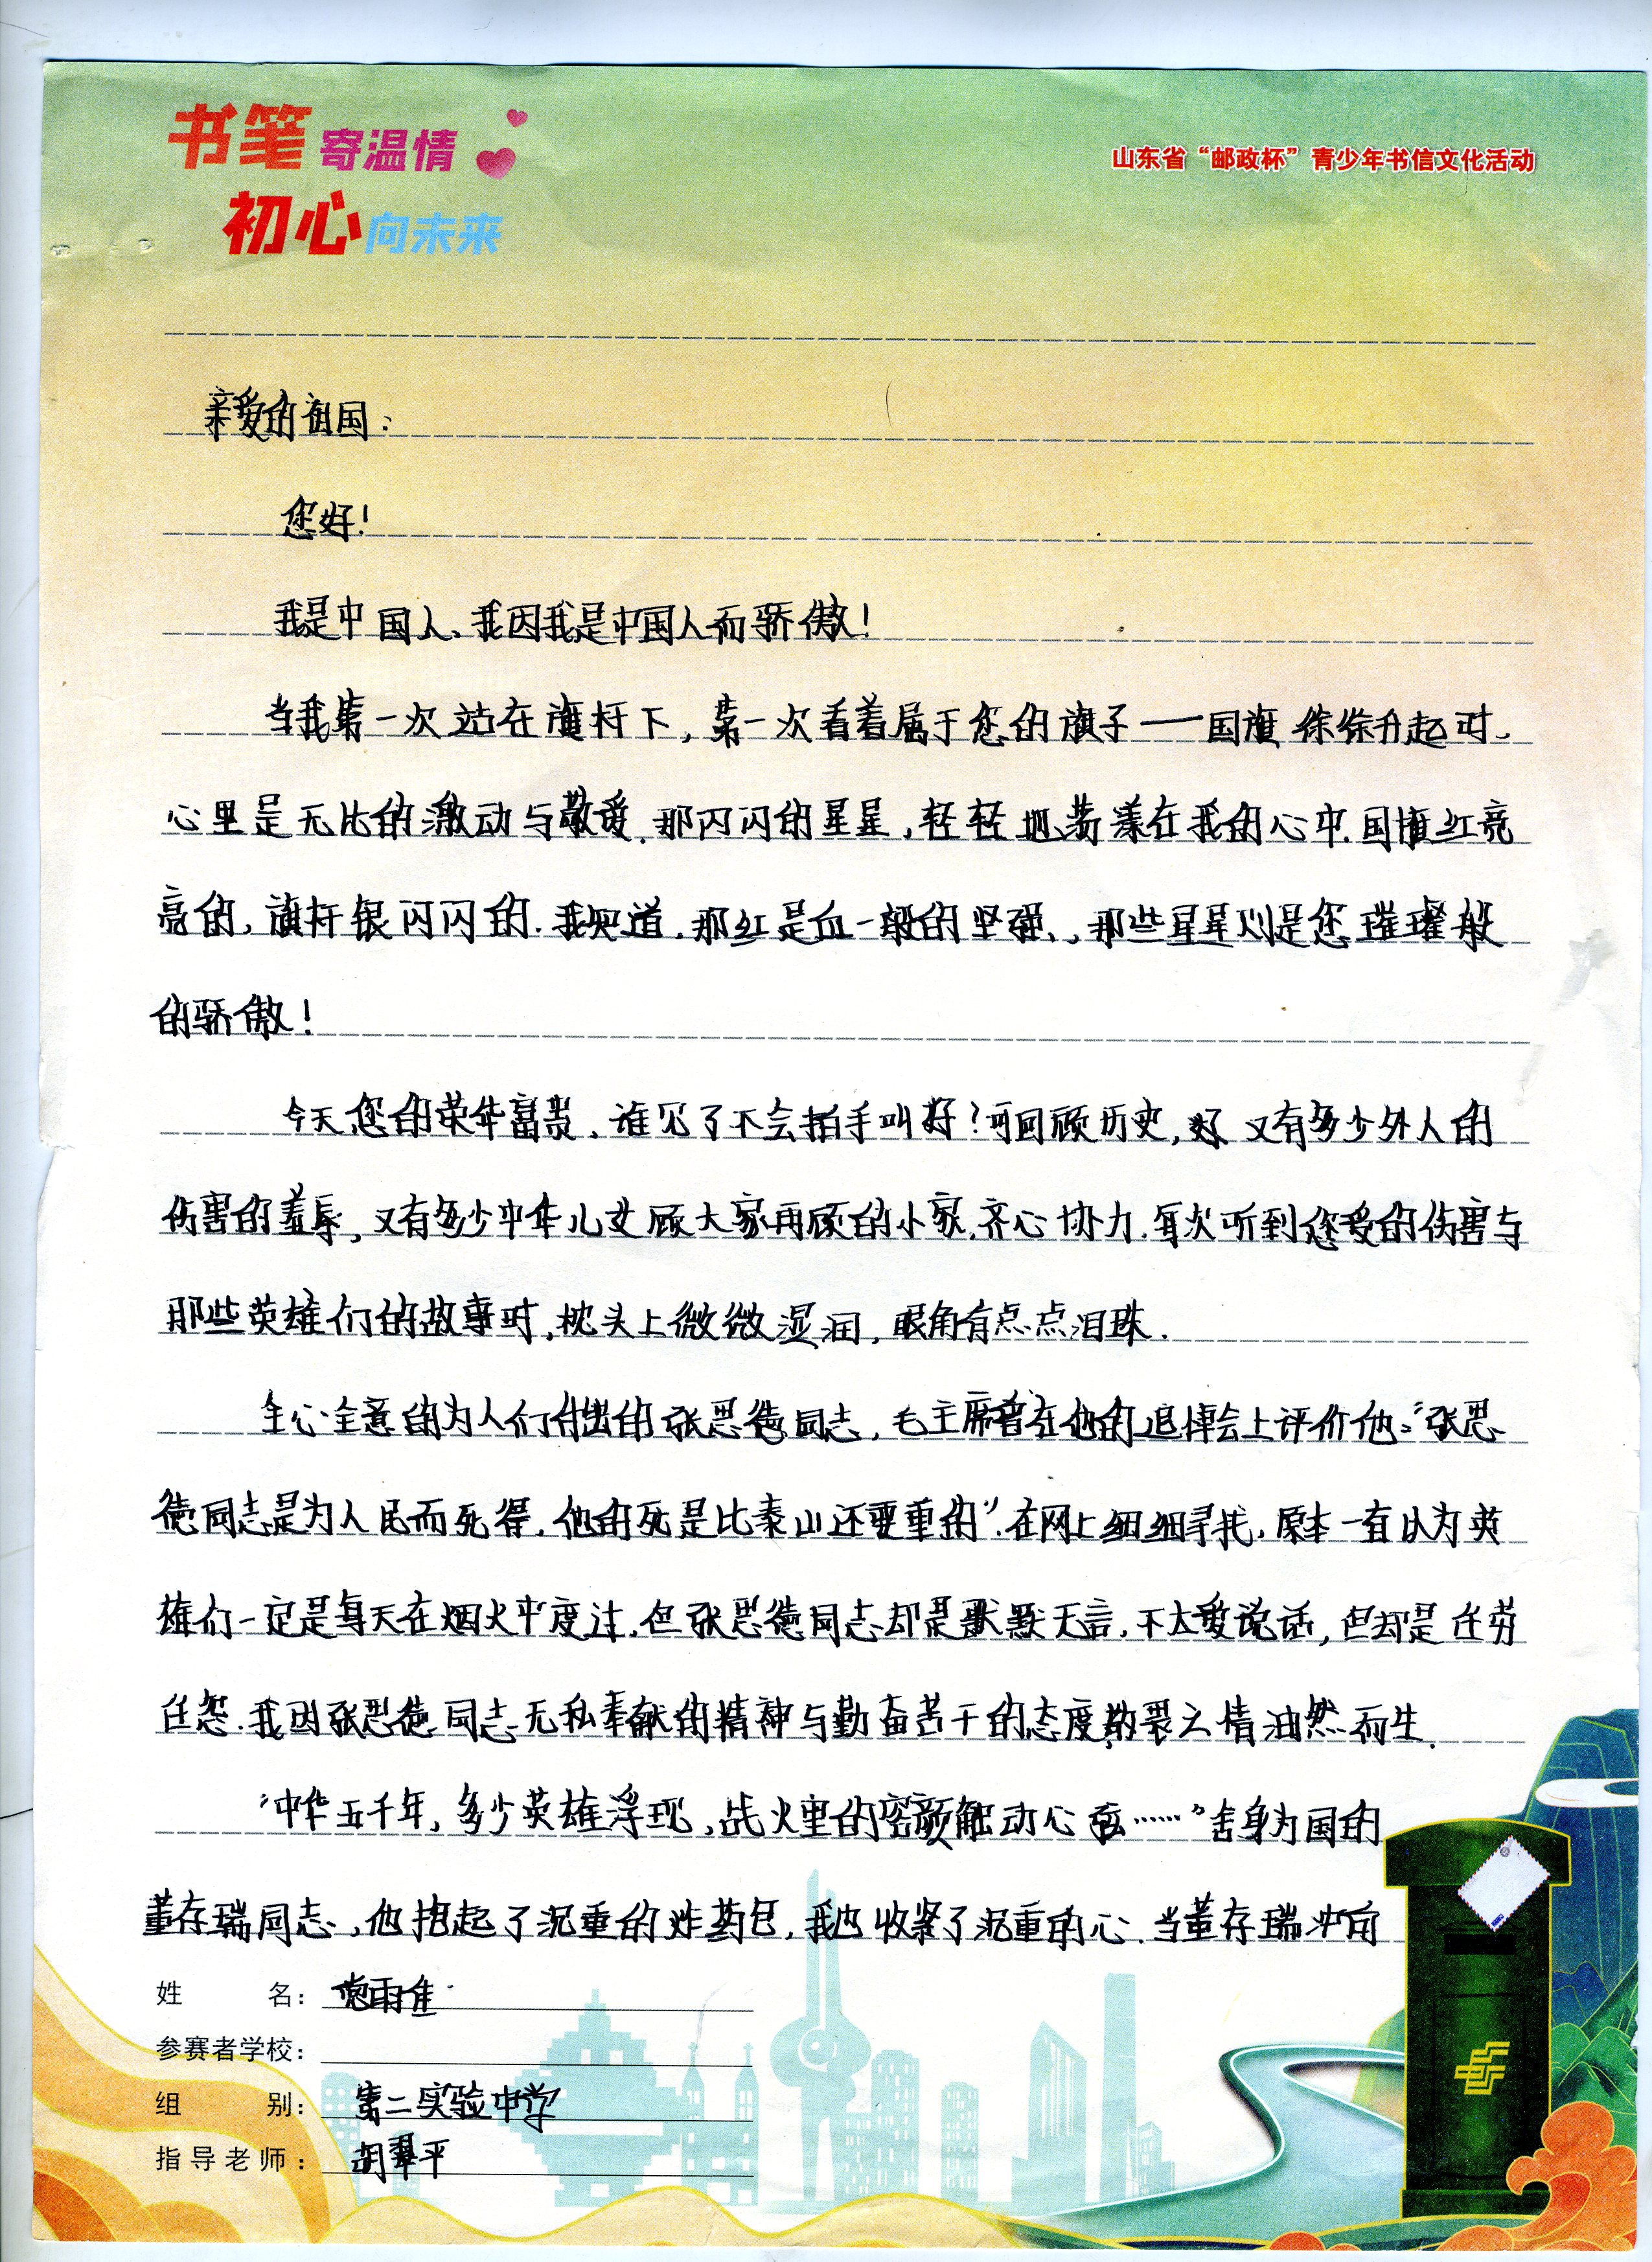 书笔寄温情
初心向未来
山东省“邮政杯”青少年书信文化活动
亲爱的祖国：
您好！
我是中国人、我因我是中国人而骄傲！
当我第一次站在旗杆下，第一次看着属于您的旗子——国旗徐徐升起时。
心里是无比的激动与敬爱.那闪闪的星星，轻轻地荡漾在我的心中.国旗红亮
亮的，旗杆银闪闪的.我知道.那红是血一般的坚强、，那些星星则是您璀璨般
的骄傲！
今天您的荣华富贵、谁见了不会拍手叫好？可回顾历史，又有多少外人的
伤害的羞辱，又有多少中华儿女顾大家再顾的小家.齐心协力.每次听到您受的伤害与
那些英雄们的故事时，枕头上微微湿润，眼角有点点泪珠.
全心全意的为人们付出的张思德同志，毛主席曾在他的追悼会上评价他：“张思
德同志是为人民而死得，他的死是比泰山还要重的”.在网上细细寻找，原本一直以为英
雄们一定是每天在烟火中度过.但张思德同志却是默默无言，不太爱说话，但却是任劳
任怨.我因张思德同志无私奉献的精神与勤奋苦干的态度，之情油然而生.
“中华五千年，多少英雄浮现，战火里的容颜触动心弦……”舍身为国的
董存瑞同志、，他抱起了沉重的炸药包，我也收紧了沉重的心.当董存瑞冲向
姓 名：党雨佳
参赛者学校：
组 别：第二实验中学
指导老师：胡翠平